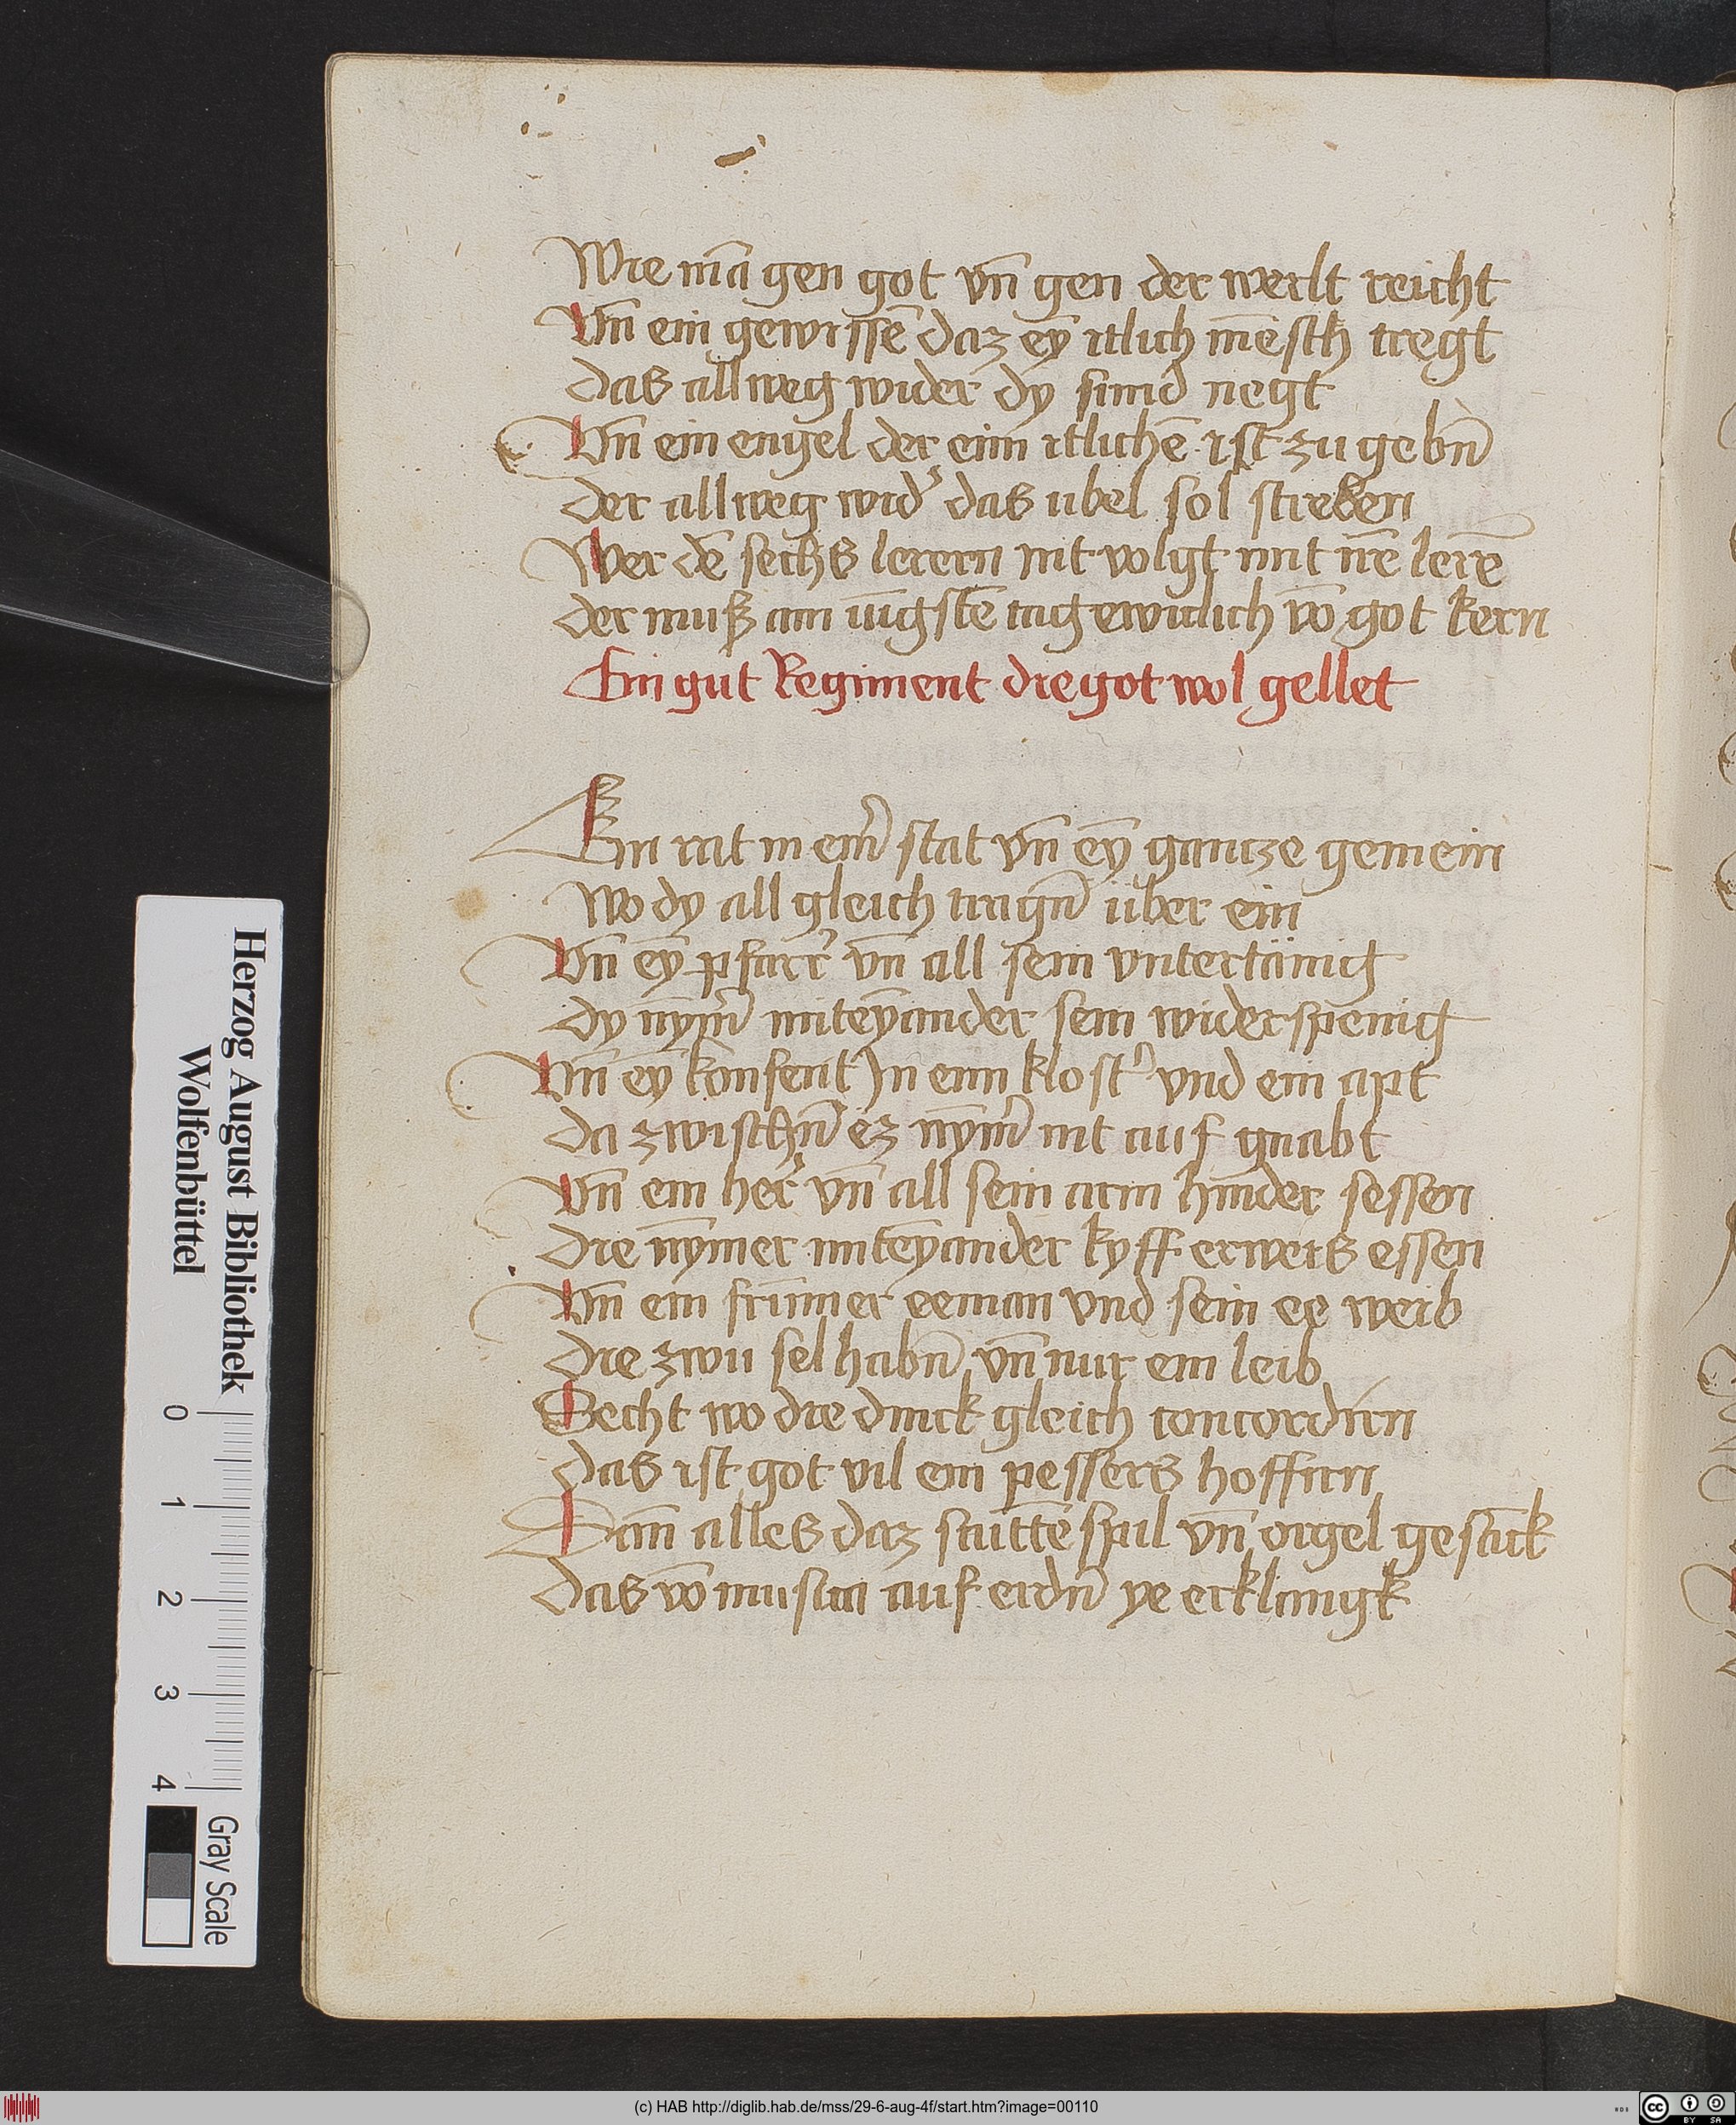 Wie mā gen got vn̄ gen der werlt reicht
Vn̄ ein gewissē daz eȳ itlich mēsch tregt
das allweg wider dy sund negt
Vn̄ ein engel der eim itlichē ist zu gebn̄
der allweg wid' das ubel sol streben
Wer dē sechs lerern nit volgt mit irē lerē
der muß am iu̅gstē tag ewiclich vō got kern
Ein gut Regiment die got wol gellet
Ein rat in ein̄ stat vn̄ eȳ gantze gemein
Wo dy all gleich tragn̄ uber ein
Vn̄ eȳ pfarr' vn̄ all sein vntertänig
dy nȳm̄ miteȳander sein widerspenig
Vn̄ eȳ konfent Jn eim klost' vnd ein apt
da zwischn̄ ez nȳm̄ nit auf gnabt
Vn̄ ein her' vn̄ all sein arm hinder sessen
die nȳmer miteȳander kyff erweis essen
Vn̄ ein frūmer eeman vnd sein ee weib
die zwu sel habn̄ vn̄ nur ein leib
Secht wo die dinck gleich concordirn
das ist got vil ein pessers hoffirn
Dan̄ alles daz saittē spil vn̄ orgel gesāck
das vō musica auf erdn̄ ye erklangk
Herzog August Bibliothek
Wolfenbüttel
0 1 2 3 4
Gray Scale
(c) HAB http://diglib.hab.de/mss/29-6-aug-4f/start.htm?image=00110
cc BY SA